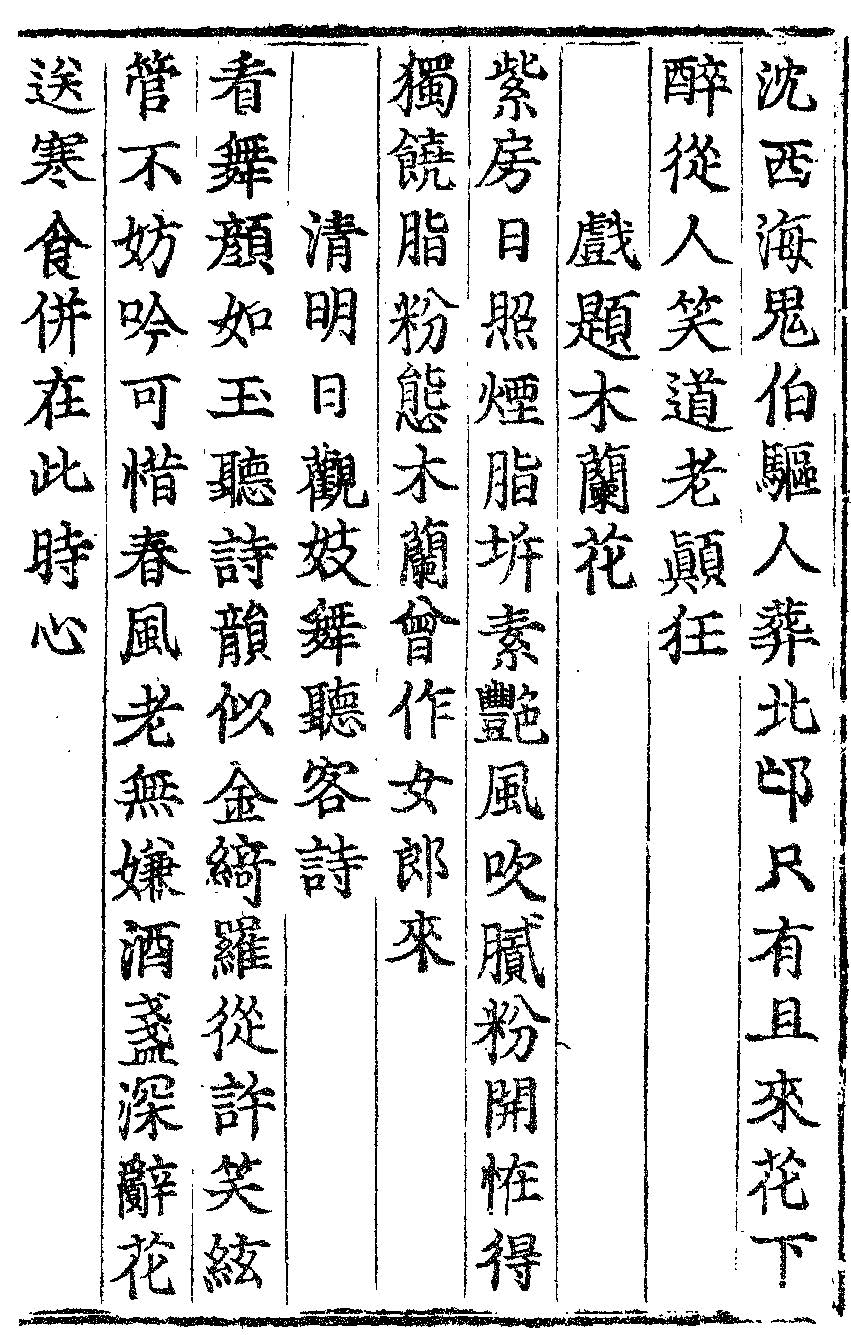 沈西海鬼伯驅人葬北邙只有且來花下
醉從人笑道老顛狂
戲題木蘭花
紫房日照煙脂坼素艷風吹膩粉開恠得
獨饒脂粉態木蘭曾作女郎來
清明日觀妓舞聽客詩
看舞顔如玉聽詩韻似金綺羅從許笑絃
管不妨吟可惜春風老無嫌酒盞深辭花
送寒食併在此時心